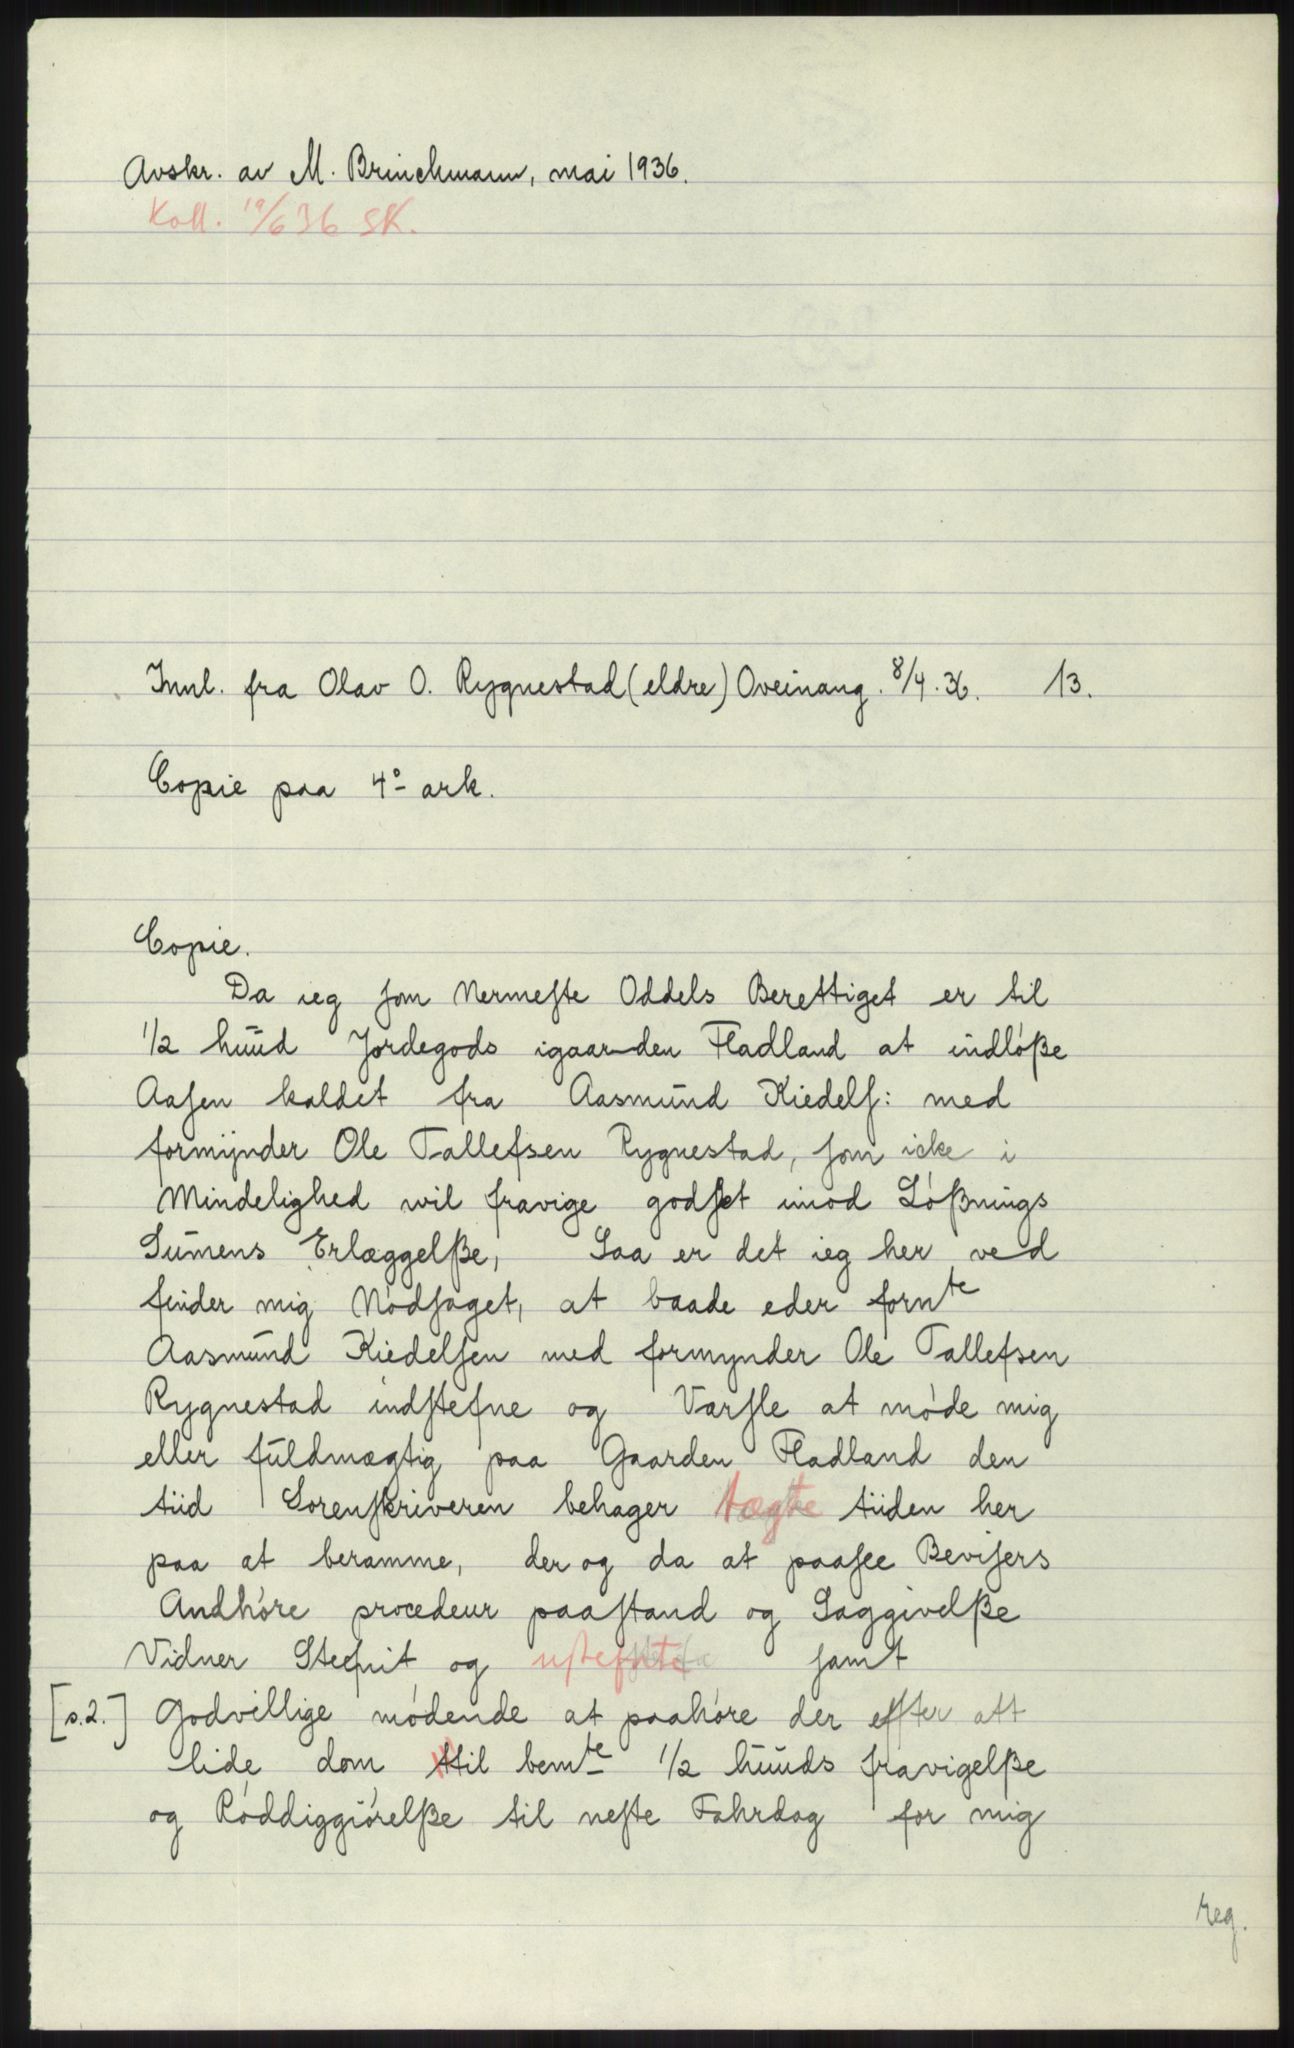 Avskr. av M. Brinchmann, mai 1936.
Koll. 19/6 36 SK.
Innl. fra Olav O. Rygnestad (eldre) Oveinang. 8/4. 36. 13.
Copie paa 4º ark.
Copie.
Da ieg ſom Nermeſte Oddels Berettiget er til
1/2 huud Jordegods igaarden Fladland at indlöße
Aaſen kaldet fra Aasmund Kiedelſ: med
formijnder Ole Tallefsen Rygnestad, ſom icke i
Mindelighed wil fravige godſet imod Lößnings
Sumens Erlæggelße, Saa er det ieg her ved
finder mig Nödſaget, at baade eder fornte
Aasmund Kiedelſen med formynder Ole Tallefsen
Rygnestad indſtefne og Varſle at möde mig
eller fuldmægtig paa Gaarden Fladland den
tiid Sorenſkriveren behager tægte tiiden her
paa at beramme, der og da at paaſee Beviſers
Andhöre procedeur paaſtand og Saggivelße
Vidner Stefnit og uſtefnte ſamt
[s.2.] Godvillige mödende at paahöre der efter att
lide dom til bemte 1/2 huuds fravigelße
og Röddiggiörelße til neſte Fahrdag for mig
reg.